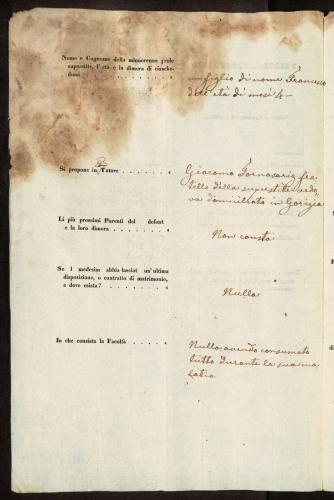 Nome e Cognome della minorenne prole
superstite, l'età e la dimora di ciasche-
duno . . . . . . . .
un figlio di nome Francesco
dell'età di mesi 4 –
Si propone in Con Tutore . . . . . . .
Giacomo Fornasarig fra-
tello della superstite vedo-
va domiciliato in Gorizia
Li più prossimi Parenti del defunt
e la loro dimora . . . . . . . .
Non consta
Se i medesim abbia lasciat un'ultima
disposizione, o contratto di matrimonio,
e dove esista? . . . . . . . .
Nulla
In che consista la Facoltà . . . . .
Nulla avendo consumato
tutto durante la sua ma-
latia